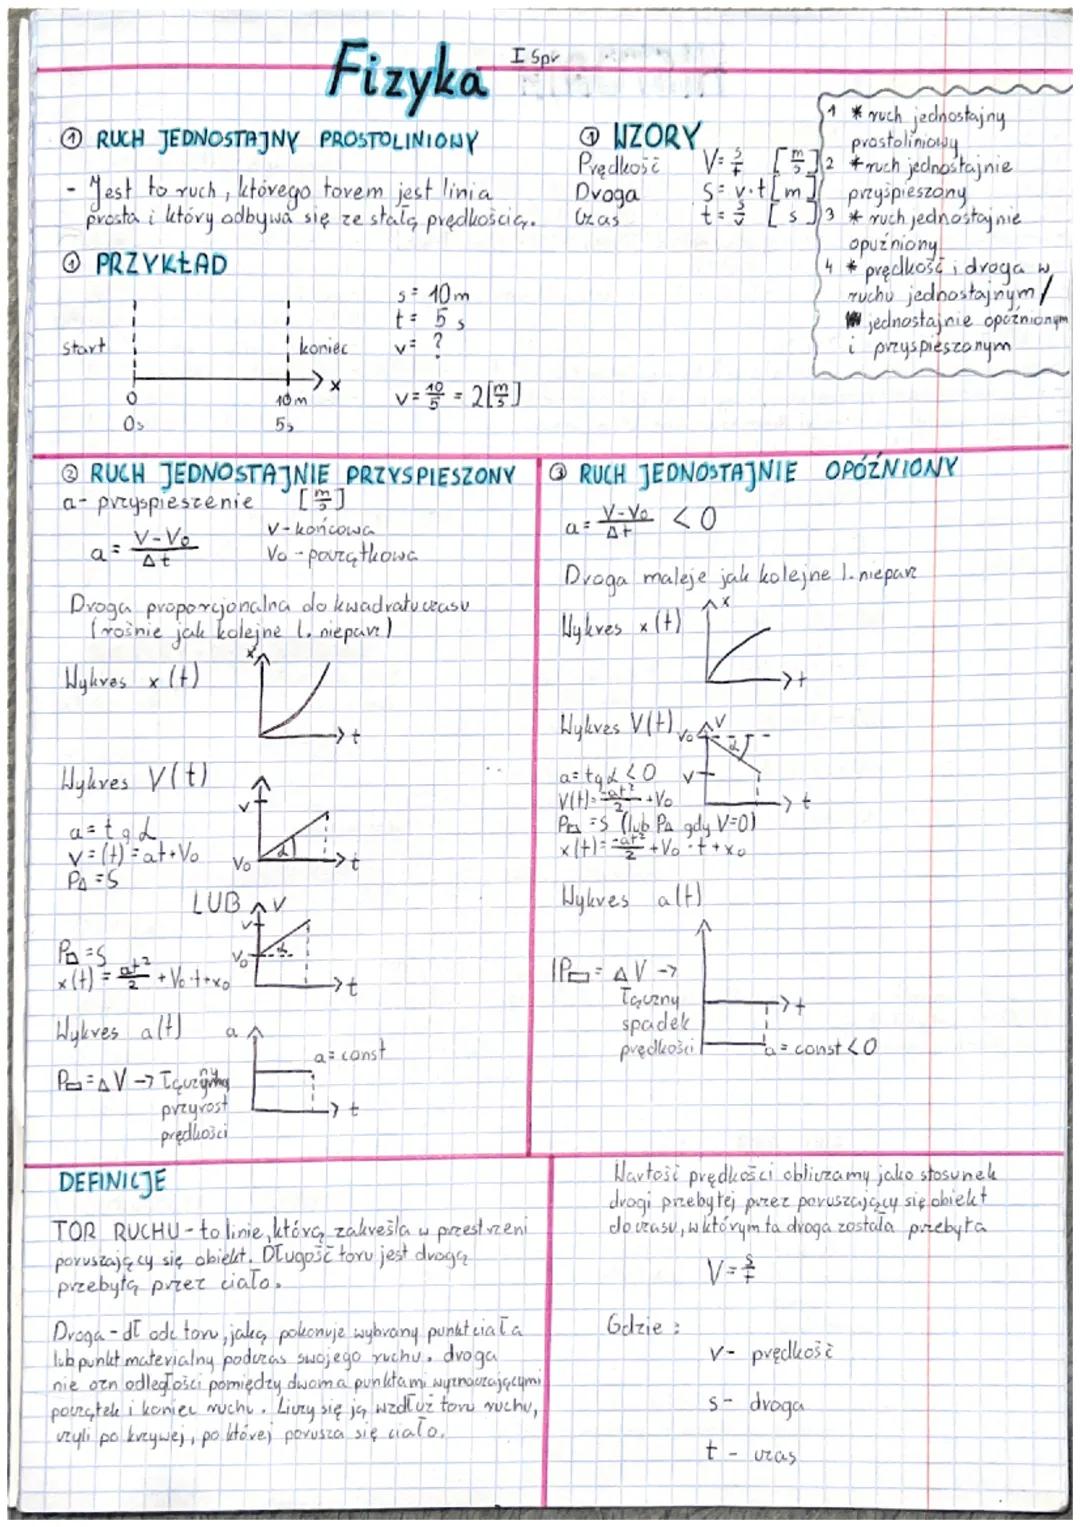 Fizyka
I Spr
① RUCH JEDNOSTAJNY PROSTOLINIOWY
- Jest to ruch, którego torem jest linia
prosta i który odbywa się ze stałą prędkością.
① WZORY
Prędkość V = s/t [m/s]
Droga S = v·t [m]
Czas t = s/v [s]
1 * ruch jednostajny
prostoliniowy
2 * ruch jednostajnie
przyśpieszony
3 * ruch jednostajnie
opuźniony
4 * prędkość i droga w
ruchu jednostajnym /
jednostajnie opóźnionym
i przyspieszonym
① PRZYKŁAD
start
koniec
x
0
10m
0s
5s
s = 10m
t = 5s
v = ?
v = 10/5 = 2 [m/s]
② RUCH JEDNOSTAJNIE PRZYSPIESZONY
a - przyspieszenie [m/s]
a = V-Vo/Δt
V - końcowa
Vo - początkowa
Droga proporcjonalna do kwadratu czasu
(rośnie jak kolejne l. niepar.)
Wykres x(t)
x
t
Wykres V(t)
a = tgα
v = (t) = at + Vo
P△ = S
V
Vo
α
t
LUB
V
V
Vo
α
t
P = S
x(t) = at²/2 + Vo·t + xo
Wykres a(t)
a
a = const
t
P▭ = ΔV → Łączny
przyrost
prędkości
③ RUCH JEDNOSTAJNIE OPÓŹNIONY
a = V-Vo/Δt < 0
Droga maleje jak kolejne l. niepar
Wykres x(t)
x
t
Wykres V(t)
V
Vo
α
V
t
a = tgα < 0
V(t) = -at²/2 + Vo
P = S (lub P△ gdy V=0)
x(t) = -at²/2 + Vo·t + xo
Wykres a(t)
|P▭ = ΔV →
Łączny
spadek
prędkości
t
a = const < 0
DEFINICJE
TOR RUCHU - to linie, którą zakreśla w przestrzeni
poruszający się obiekt. Długość toru jest drogą
przebytą przez ciało.
Droga - dł odc toru, jaką pokonuje wybrany punkt ciała
lub punkt materialny podczas swojego ruchu. droga
nie ozn odległości pomiędzy dwoma punktami wyznaczającymi
początek i koniec ruchu. Liczy się ją wzdłuż toru ruchu,
czyli po krzywej, po której porusza się ciało.
Wartość prędkości obliczamy jako stosunek
drogi przebytej przez poruszający się obiekt
do czasu, w którym ta droga została przebyta
V = s/t
Gdzie :
v - prędkość
s - droga
t - czas